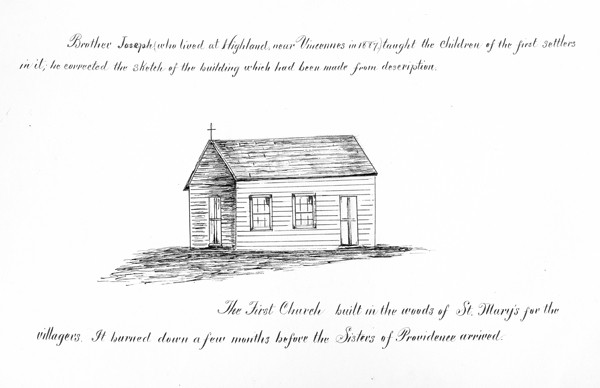 Brother Joseph (who lived at Highland, near Vincennes in 1887,) taught the children of the first settlers
in it; he corrected the sketch of the building which had been made from description.
The First Church built in the woods of St. Mary's for the
villagers. It burned down a few months before the Sisters of Providence arrived.